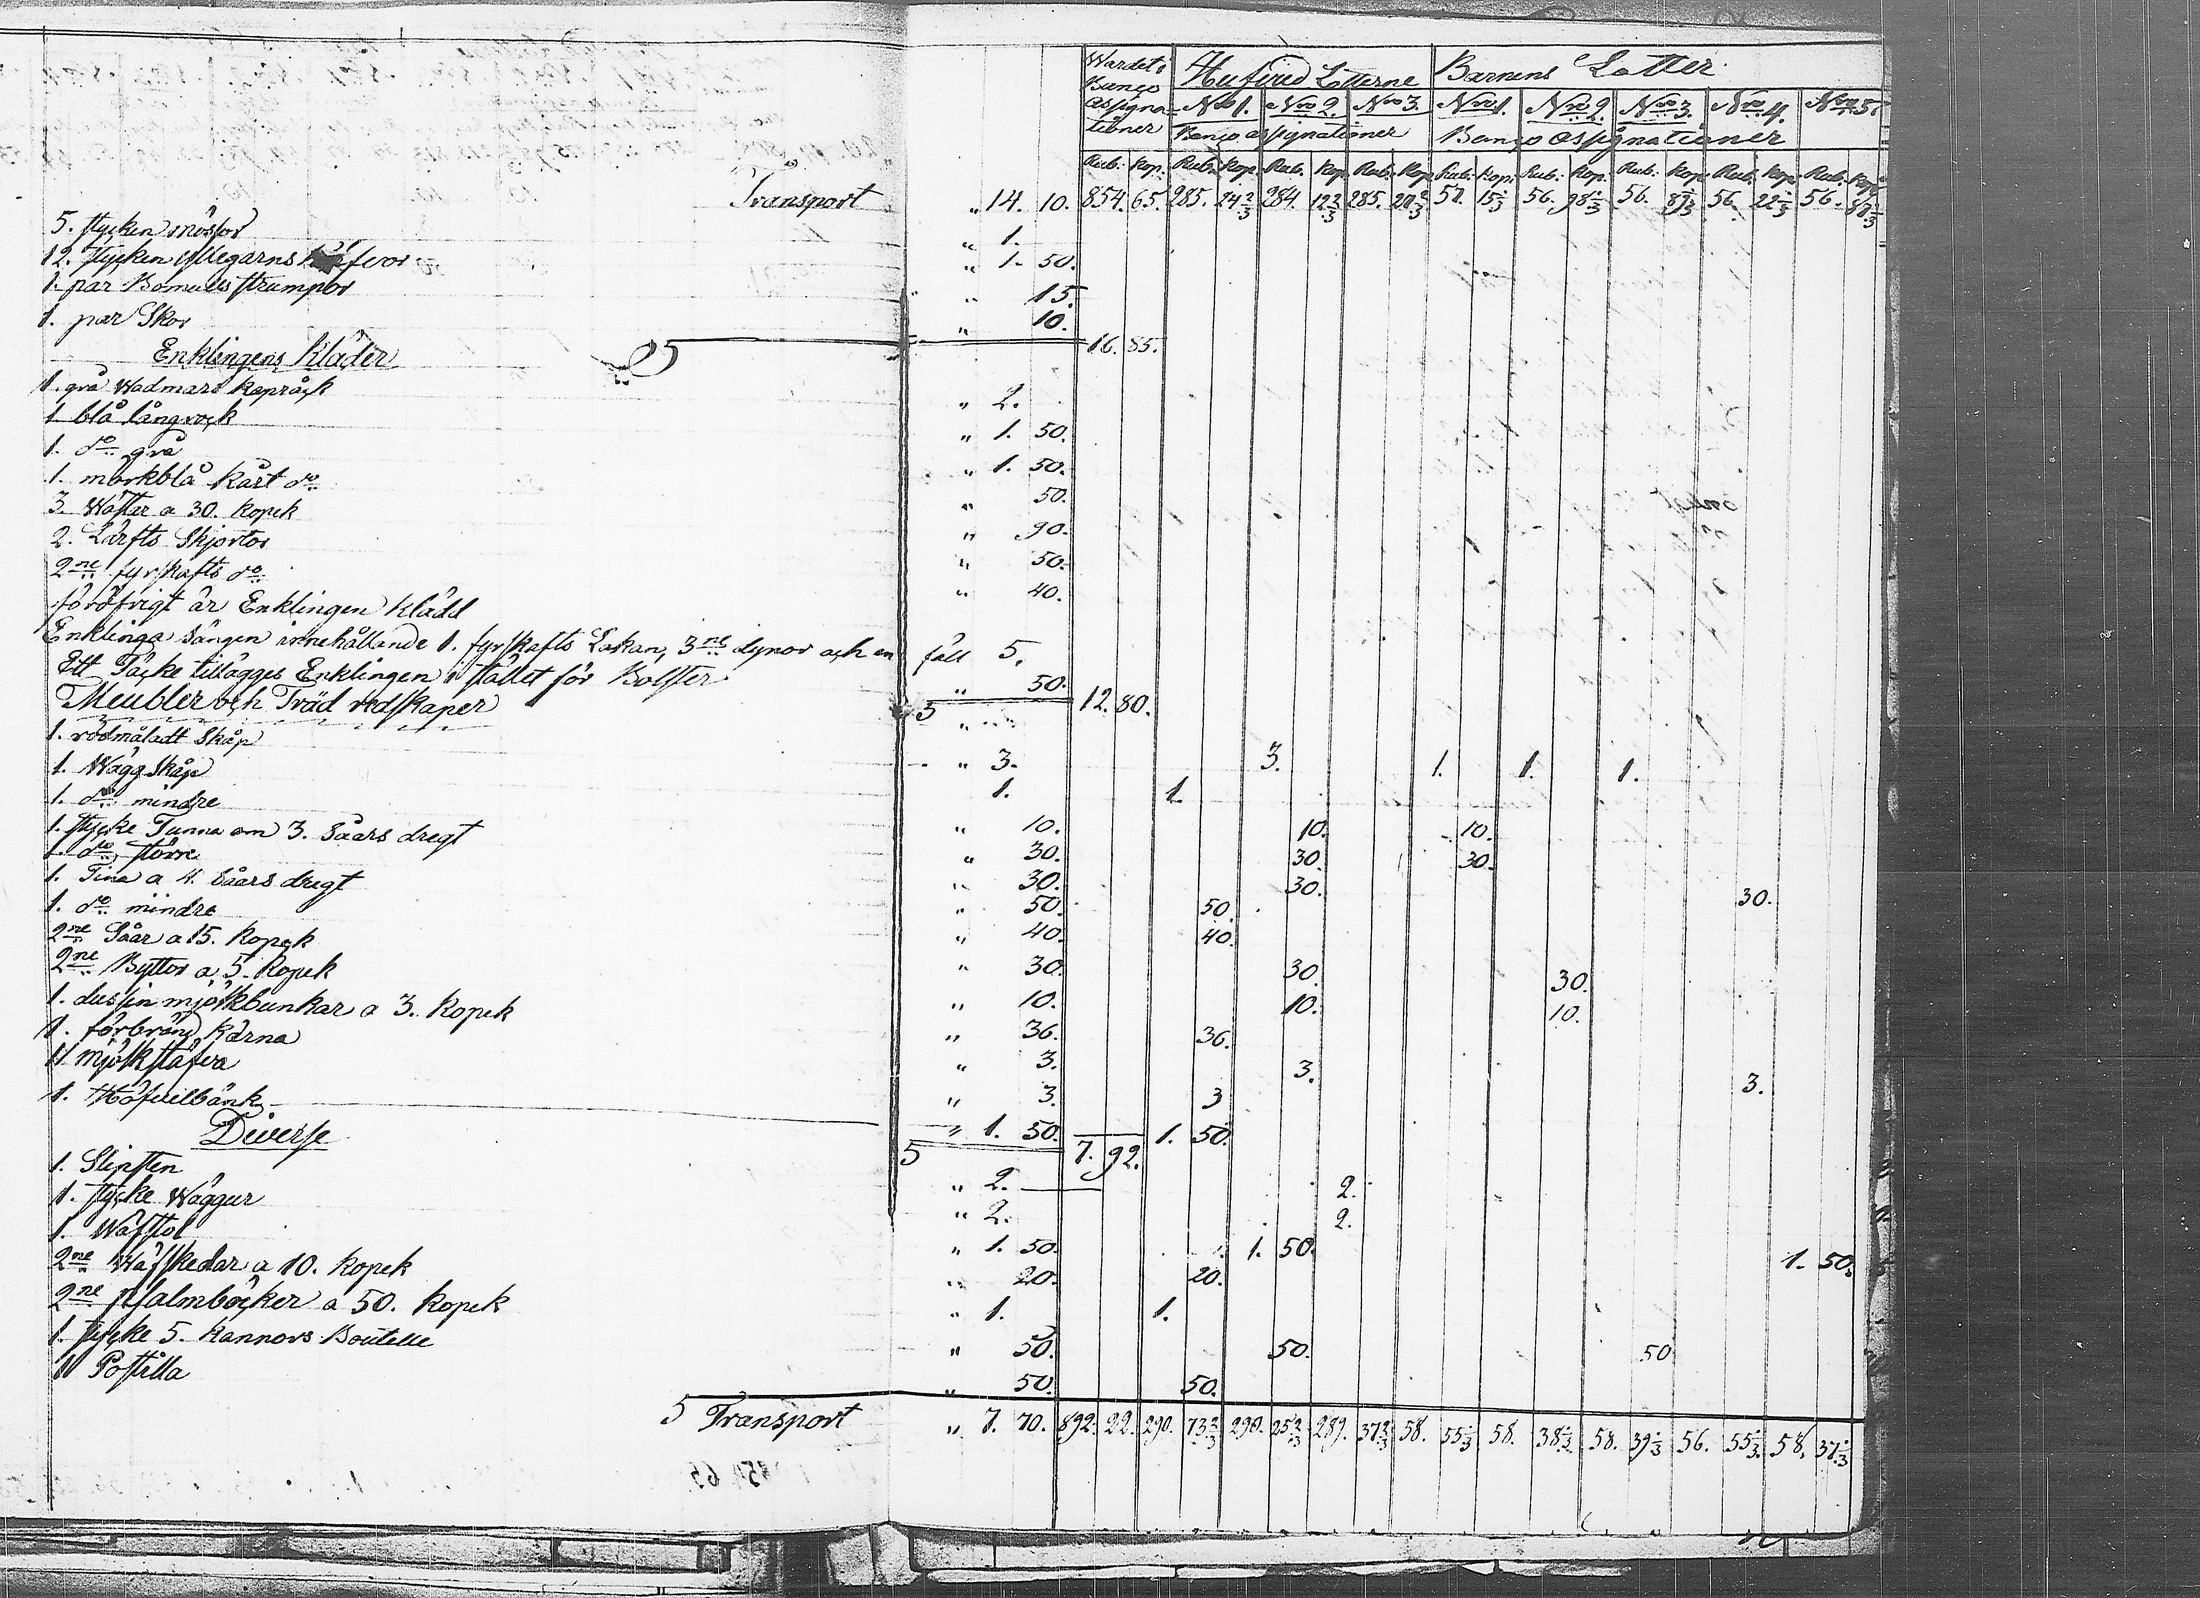 Wardet i Banco assignationer Hufvud Lotterne Barnens Lotter
Nro 1. Nro 2. Nro 3. Nro 1. Nro 2. Nro 3. Nro 4. Nro 5.
Banco assignationer Banco assignationer
Rub: Kop. Rub: Kop. Rub: Kop. Rub: Kop. Rub: Kop. Rub: Kop. Rub: Kop. Rub: Kop. Rub: Kop.
Transport „ 14. 10. 854. 65. 285. 24 2/3 284. 12 2/3 285. 27 2/3 57. 15 1/3 56. 98 1/3 56. 87 1/3 56. 22 1/3 56.
5. stycken mössor „ 1.
12. stycken yllegarns „ 1. 50.
1. par Bomulls strumpor „ 15.
1. par Skor „ 10. 16. 85.
Enklingens Kläder
1. grå Wadmars Kapråck „ 2.
1. blå långråck „ 1. 50.
1. do grå „ 1. 50.
1. mörkblå kårt do „ 50.
3. Wästar a 30. Kopek „ 90.
2. Lärfts Skjortor „ 50.
2ne fyrskafts do „ 40.
föröfrigt är Enklingen klädd
Enklinga sängen innehållande 1. fyrskafts Lakan, 3ne dynor och en fäll 5.
Ett Täcke tillägges Enklingen i stället för Bolster „ 50. 12. 80.
Meubler och Träd redskaper
1. rödmåladt Skåp „ 3. 3. 1. 1. 1.
1. Wägg Skåp 1. 1.
1. do mindre „ 10. 10. 10.
1. stycke Tunna om 3. Såars dregt „ 30. 30. 30.
1. do större „ 30. 30. 30.
1. Tina a 4. Såars dregt „ 50. 50.
1. do mindre „ 40. 40.
2ne Såar a 15. Kopek „ 30. 30. 30.
2ne Byttor a 5. Kopek „ 10. 10. 10.
1. dussin mjölkbunkar a 3. Kopek „ 36. 36.
1. förbränd Kärna „ 3. 3. 3.
1. mjölkstäfva „ 3. 3
1. Höfvelbänk „ 1. 50. 1. 50.
Diverse 5 7. 92.
1. Slipsten „ 2. 2.
1. stycke Wäggur „ 2. 2.
1. Wäfstol „ 1. 50. 1. 50. 1. 50.
2ne Wäfskedar a 10. Kopek „ 20. 20.
2ne psalmböcker a 50. Kopek „ 1. 1.
1. stycke 5. Kannors Boutelle „ 50. 50. 50
1. Postilla „ 50. 50.
5 Transport „ 7. 70. 892. 22. 290. 73 2/3 290. 25 2/3 289. 37 2/3 58. 55 1/3 58. 38 1/3 58. 39 1/3 56. 55 1/3 58. 37 1/3